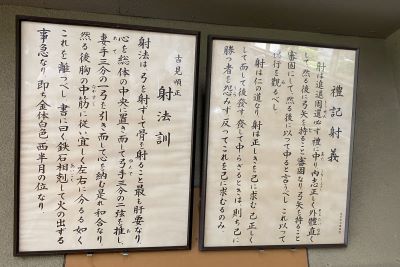 禮記射義
射は進退周還必ず禮に中り、内志正しく、外體直く
して、然る後に弓矢を持ること審固なり。弓矢を持ること
審固にして、然る後に以って中ると言うべし。これ以って
徳行を観るべし。
射は仁の道なり。射は正しきを己に求む。己正しく
して而して後發す。發して中らざるときは、則ち己に
勝つ者を怨みず。反ってこれを己に求むるのみ。
射法訓
吉見順正
射法は、弓を射ずして骨を射ること最も肝要なり。
心を総体の中央に置き、而して弓手三分の二弦を推し、
妻手三分の一弓を引き、而して心を納む是れ和合なり。
然る後胸の中筋に従い、宜しく左右に分るる如く
これを離つべし。書に曰く、鉄石相剋して火の出ずる
事急なり。即ち金体白色、西半月の位なり。